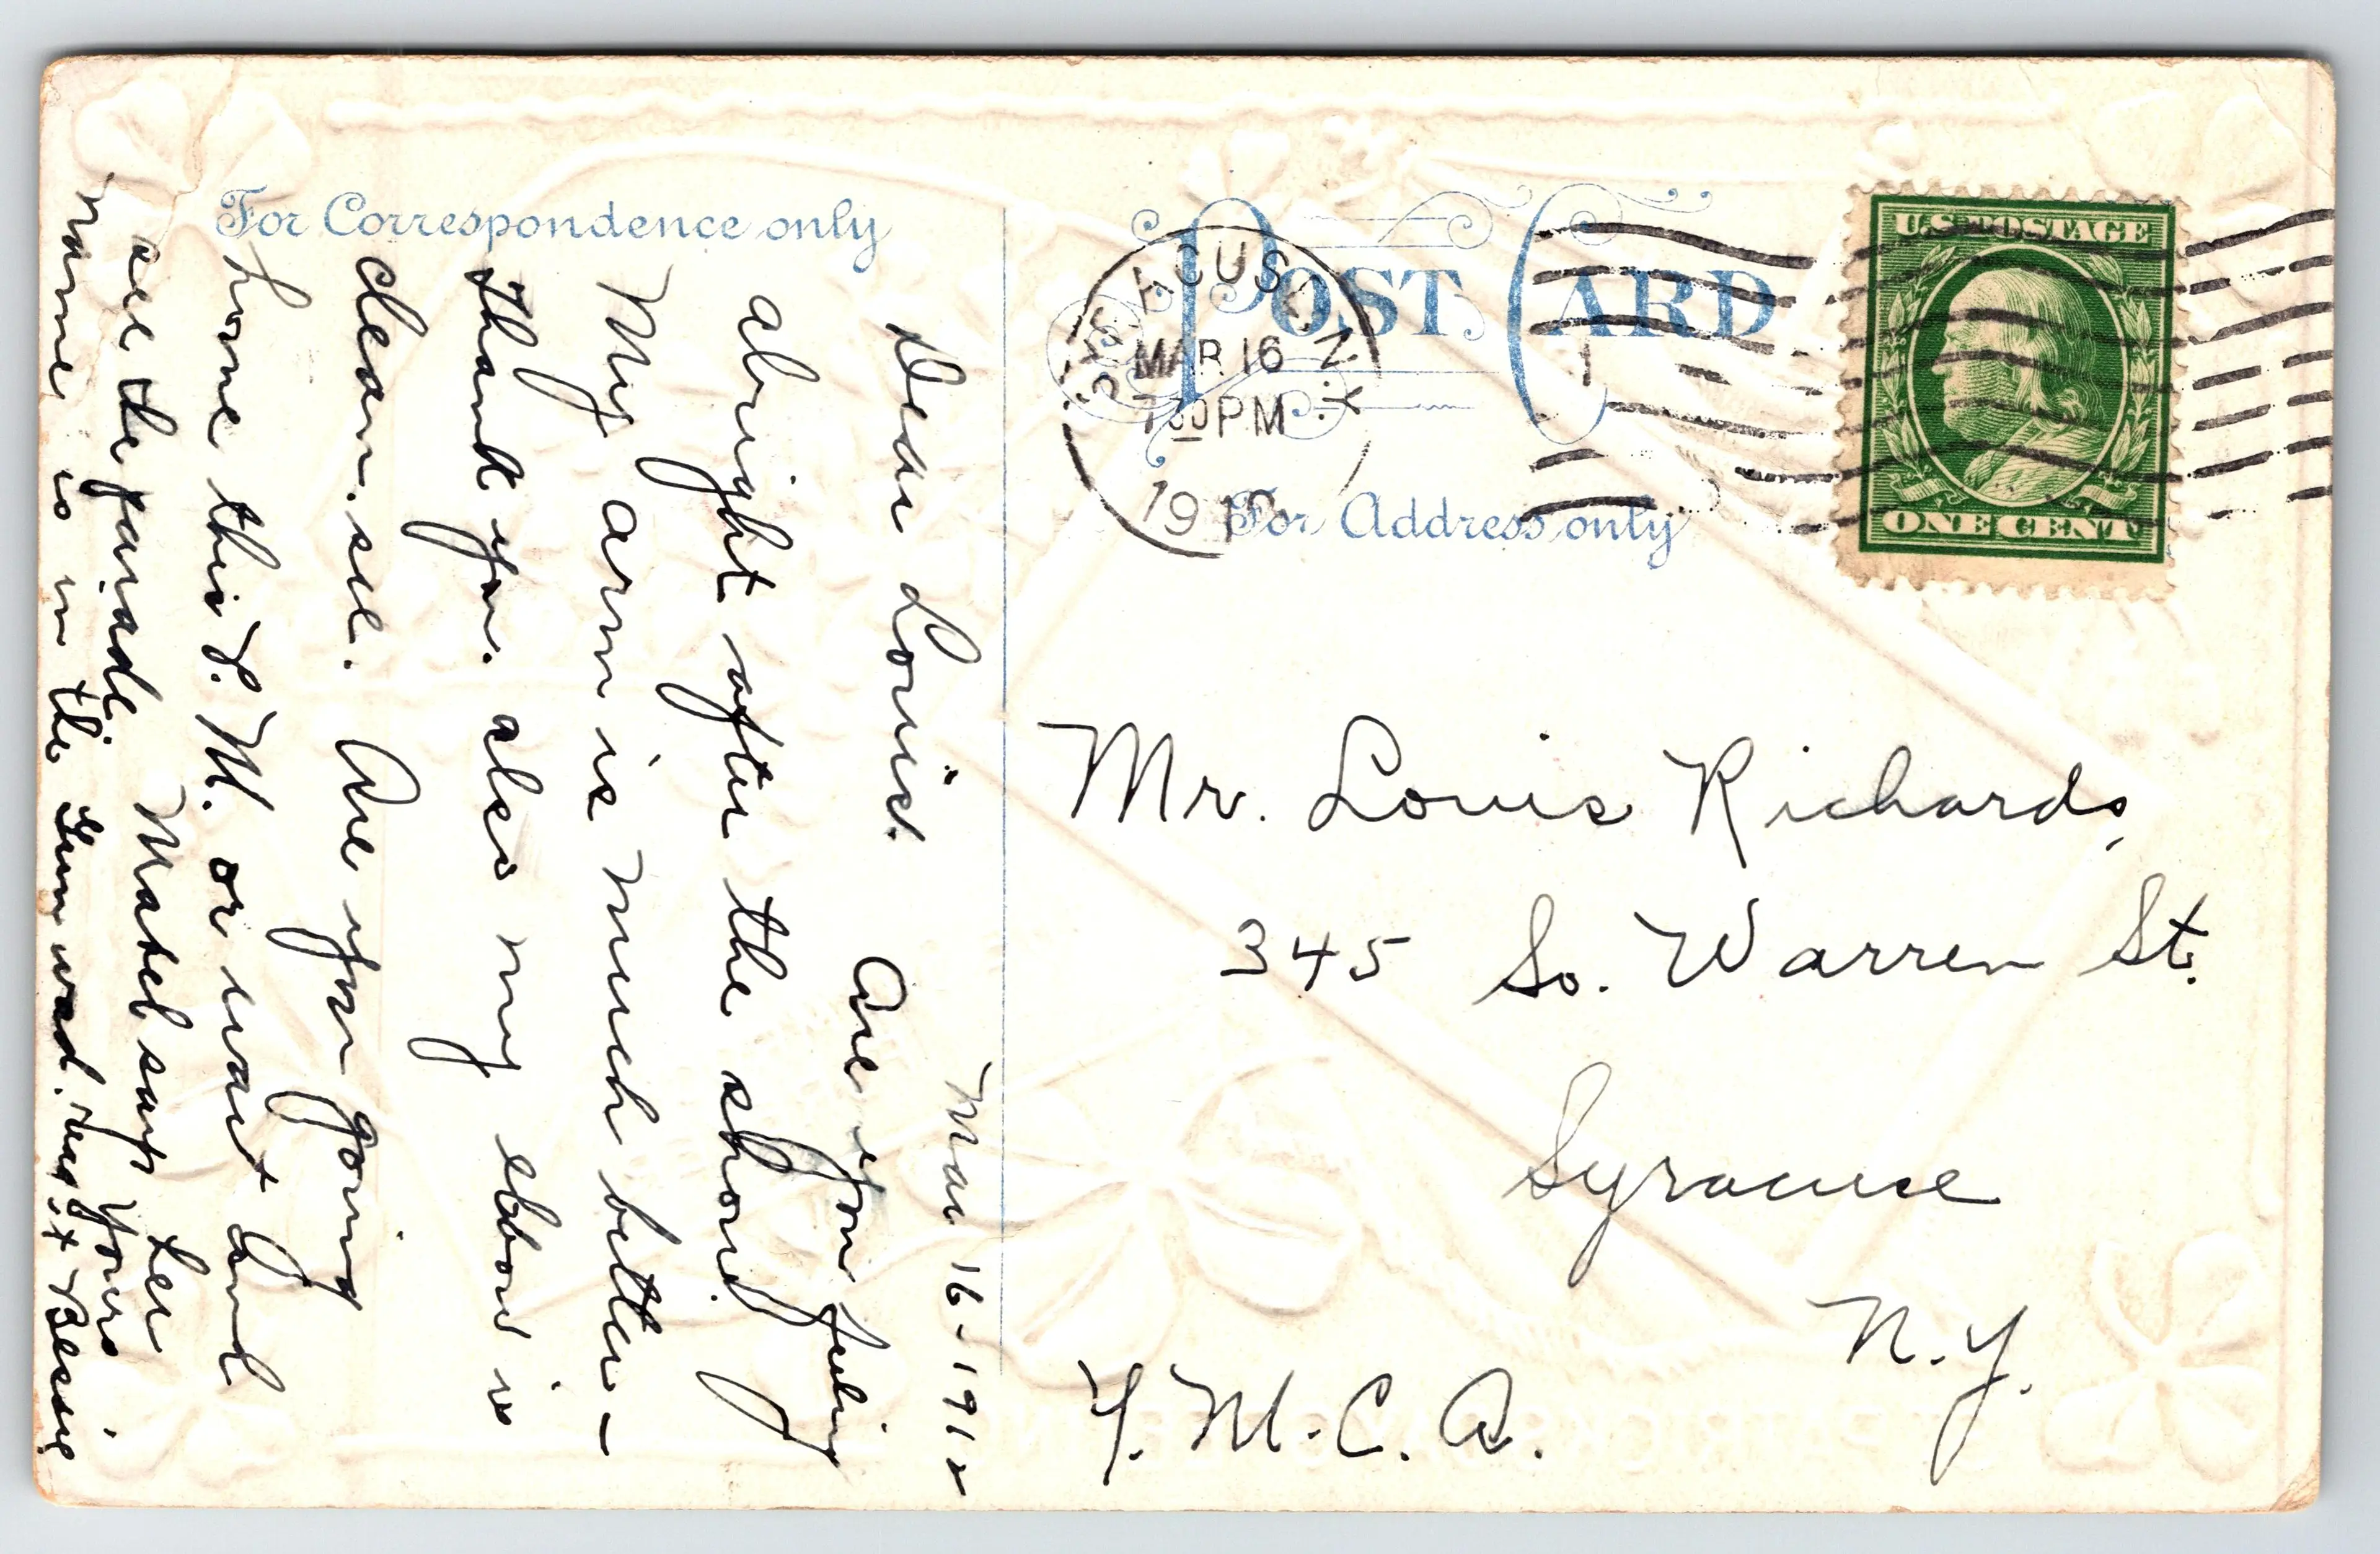 For Correspondence only
POST CARD
For Address only
SYRACUSE, N.Y.
MAR 16
7 30 PM
191
U.S. POSTAGE
ONE CENT
Mar 16 - 1912
Dear Louis. Are you feeling
alright after the shong
My arm is much better –
thank you. also my elbow is
clean. see. Are you going
home this P.M. or want and
see the parade. Mabel says her
name is in the Yours,
Bessie
Mr. Louis Richards,
345 So. Warren St.
Syracuse
N.Y.
Y.M.C.A.